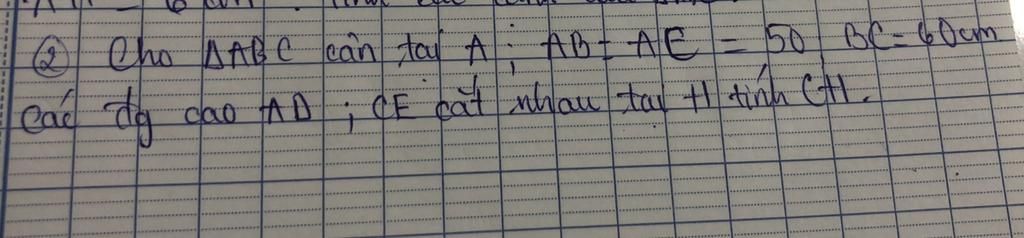 ② Cho ΔABC cân tại A ; AB = AC = 50 BC = 60cm
các đg cao AD ; CE cắt nhau tại H tính CH.